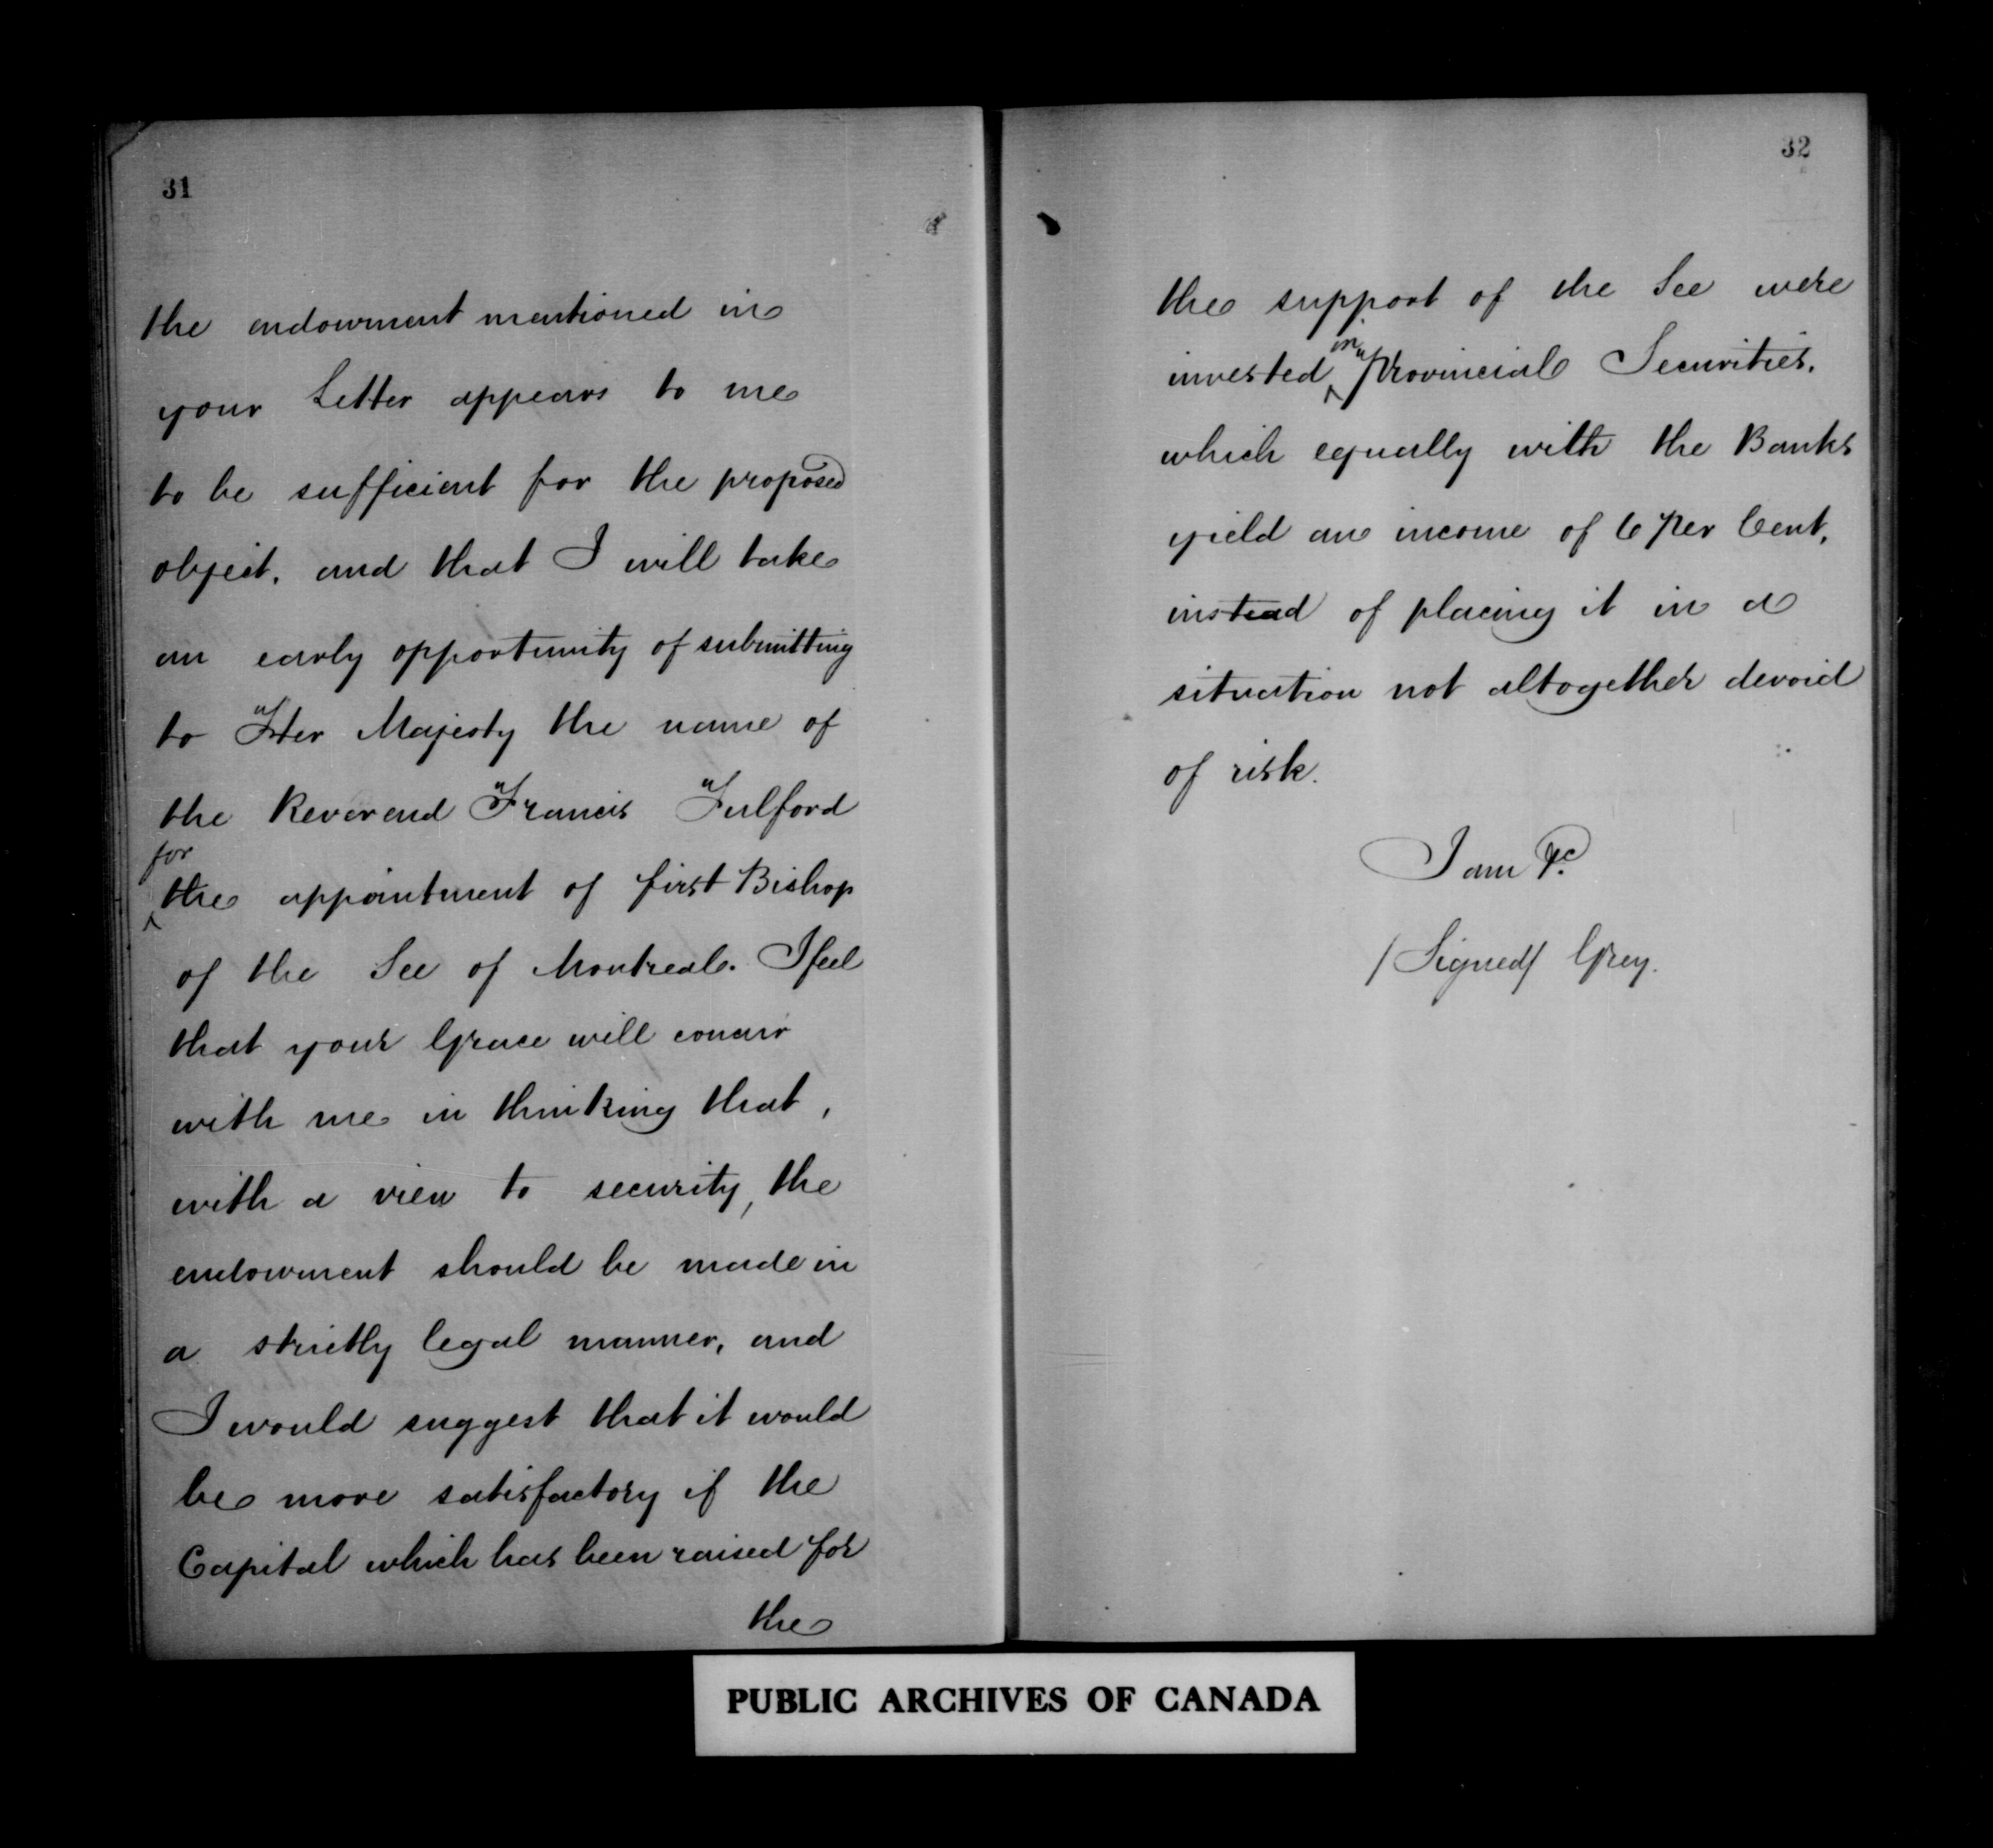 31
the endowment mentioned in
your Letter appears to me
to be sufficient for the proposed
object, and that I will take
an early opportunity of submitting
to Her Majesty the name of
the Reverend Francis Fulford
for
the appointment of first Bishop
of the See of Montreal. I feel
that your Grace will concur
with me in thinking that,
with a view to security, the
endowment should be made in
a strictly legal manner, and
I would suggest that it would
be more satisfactory if the
Capital which has been raised for
the
32
the support of the See were
in
invested Provincial Securities,
which equally with the Banks
yield an income of 6 Per Cent,
instead of placing it in a
situation not altogether devoid
of risk.
I am &c
/Signed/ Grey.
PUBLIC ARCHIVES OF CANADA